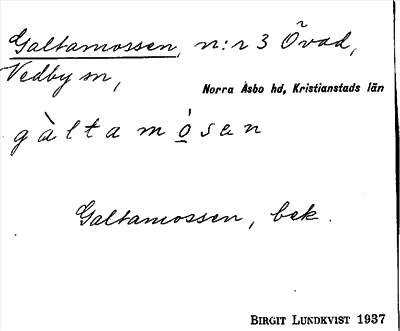 Galtamossen, n:r 3 Övad,
Vedby sn,
Norra Åsbo hd, Kristianstads län
gàltamó̲sen
Galtamossen, bek.
BIRGIT LUNDKVIST 1937